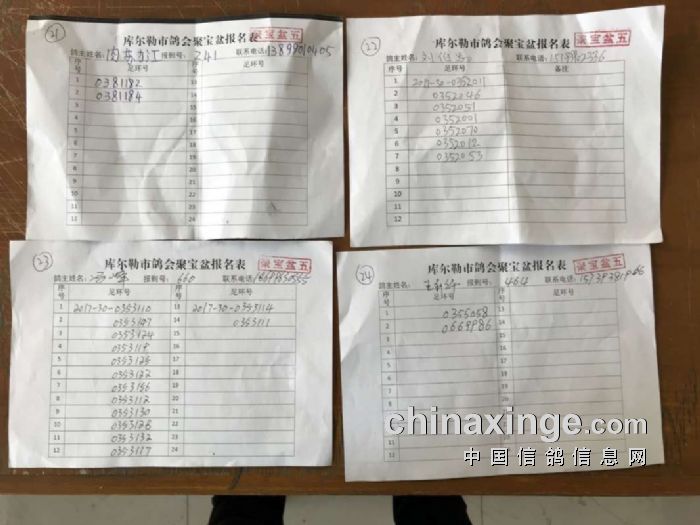 21
库尔勒市鸽会聚宝盆报名表
聚宝盆五
鸽主姓名: 报刺号: 241 联系电话: 13899010405
序号 足环号 序号 足环号
1 0381182 13
2 0381184 14
3 15
4 16
5 17
6 18
7 19
8 20
9 21
10 22
11 23
12 24
22
库尔勒市鸽会聚宝盆报名表
聚宝盆五
鸽主姓名: 联系电话:
序号 足环号 备注
1 2017-30-0352011
2 0352046
3 0352051
4 0352001
5 0352070
6 0352012
7 0352053
8
9
10
11
12
23
库尔勒市鸽会聚宝盆报名表
聚宝盆五
鸽主姓名: 报刺号: 660 联系电话:
序号 足环号 序号 足环号
1 2017-30-0353110 13 2017-30-0353114
2 0353107 14 0353111
3 0353124 15
4 0353118 16
5 0353125 17
6 0353122 18
7 0353156 19
8 0353112 20
9 0353130 21
10 0353126 22
11 0353132 23
12 0353117 24
24
库尔勒市鸽会聚宝盆报名表
聚宝盆五
鸽主姓名: 报刺号: 464 联系电话:
序号 足环号 序号 足环号
1 0355058 13
2 0669986 14
3 15
4 16
5 17
6 18
7 19
8 20
9 21
10 22
11 23
12 24
chinaxinge.com
中国信鸽信息网